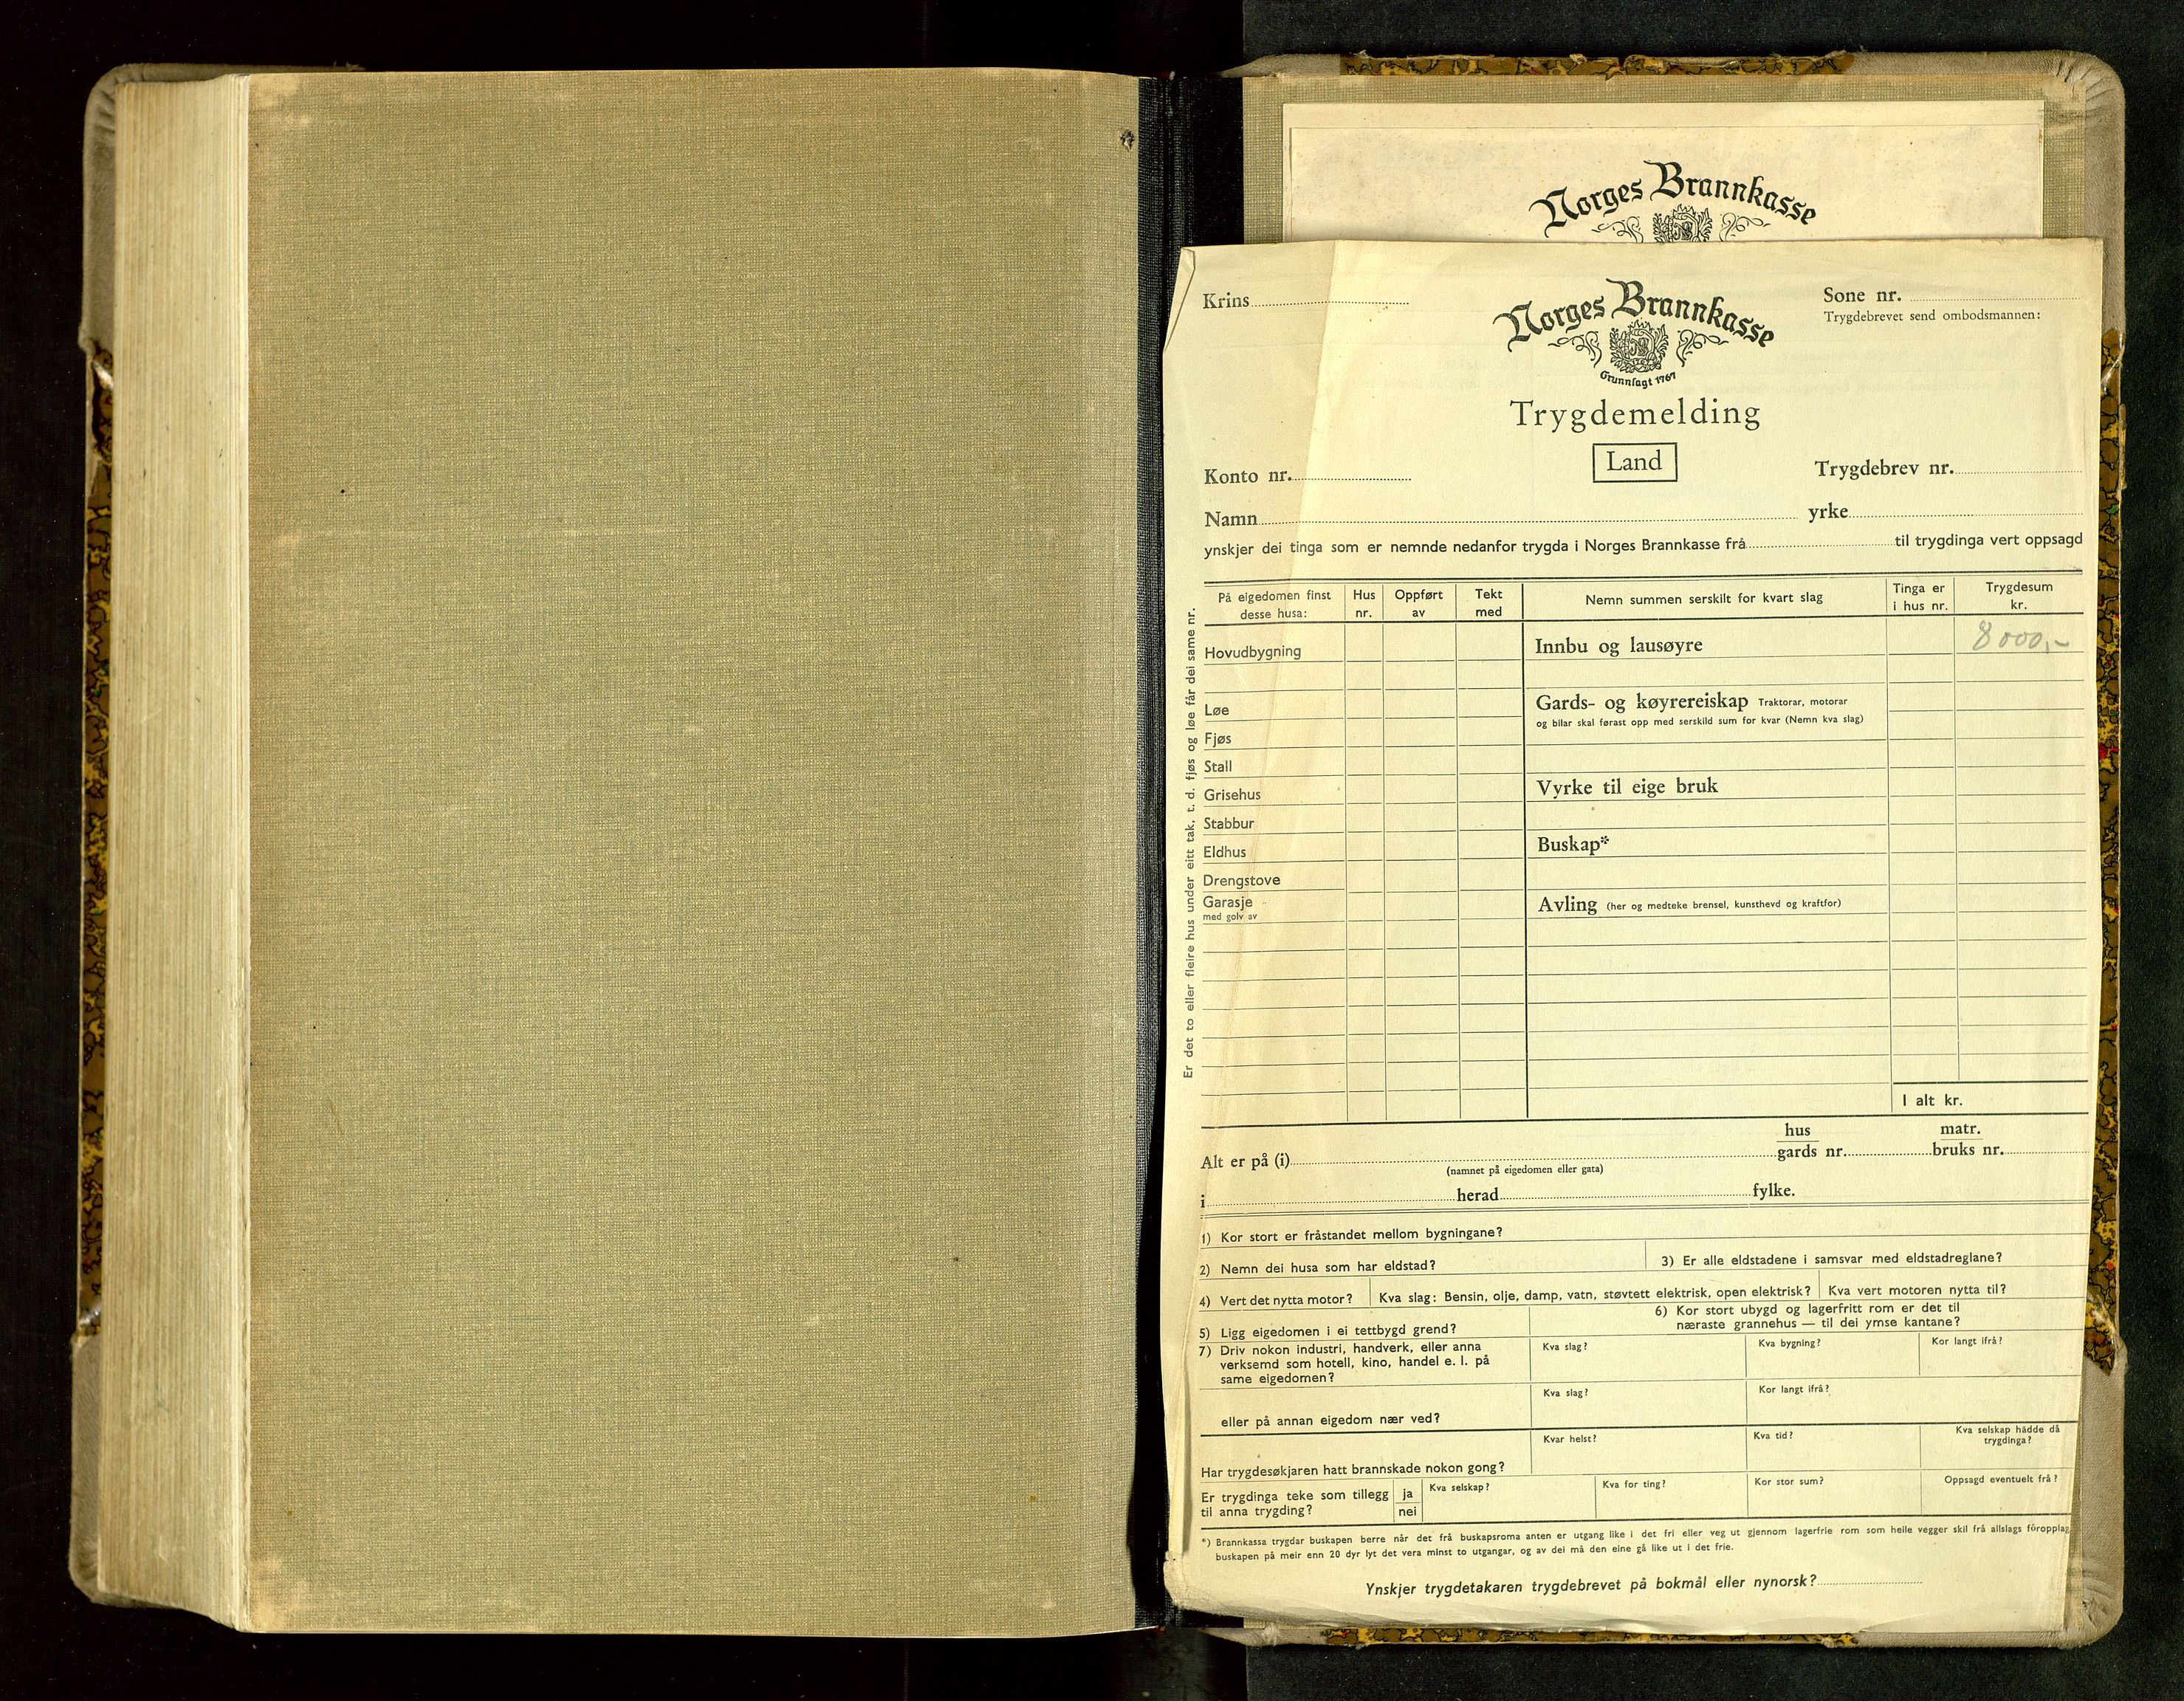 Norges Brannkasse
Krins
Norges Brannkasse
Grunnlagt 1767
Sone nr.
Trygdebrevet send ombodsmannen:
Trygdemelding
Land
Konto nr.
Trygdebrev nr.
Namn yrke
ynskjer dei tinga som er nemnde nedanfor trygda i Norges Brannkasse frå til trygdinga vert oppsagd
Er det to eller fleire hus under eitt tak, t. d. fjøs og løe får dei same nr.
På eigedomen finst desse husa: Hus nr. Oppført av Tekt med Nemn summen serskilt for kvart slag Tinga er i hus nr. Trygdesum kr.
Hovudbygning Innbu og lausøyre 8000,-
Løe Gards- og køyrereiskap Traktorar, motorar
og bilar skal førast opp med serskild sum for kvar (Nemn kva slag)
Fjøs
Stall
Grisehus Vyrke til eige bruk
Stabbur
Eldhus Buskap*
Drengstove
Garasje Avling (her og medteke brensel, kunsthevd og kraftfor)
med golv av
I alt kr.
hus matr.
Alt er på (i) gards nr. bruks nr.
(namnet på eigedomen eller gata)
i herad fylke.
1) Kor stort er fråstandet mellom bygningane?
2) Nemn dei husa som har eldstad? 3) Er alle eldstadene i samsvar med eldstadreglane?
4) Vert det nytta motor? Kva slag: Bensin, olje, damp, vatn, støvtett elektrisk, open elektrisk? Kva vert motoren nytta til?
5) Ligg eigedomen i ei tettbygd grend? 6) Kor stort ubygd og lagerfritt rom er det til
næraste grannehus — til dei ymse kantane?
7) Driv nokon industri, handverk, eller anna Kva slag? Kva bygning? Kor langt ifrå?
verksemd som hotell, kino, handel e. l. på
same eigedomen?
Kva slag? Kor langt ifrå?
eller på annan eigedom nær ved?
Kvar helst? Kva tid? Kva selskap hådde då
trygdinga?
Har trygdesøkjaren hatt brannskade nokon gong?
Er trygdinga teke som tillegg ja Kva selskap? Kva for ting? Kor stor sum? Oppsagd eventuelt frå?
til anna trygding? nei
*) Brannkassa trygdar buskapen berre når det frå buskapsroma anten er utgang like i det fri eller veg ut gjennom lagerfrie rom som heile vegger skil frå allslags fôropplag
buskapen på meir enn 20 dyr lyt det vera minst to utgangar, og av dei må den eine gå like ut i det frie.
Ynskjer trygdetakaren trygdebrevet på bokmål eller nynorsk?